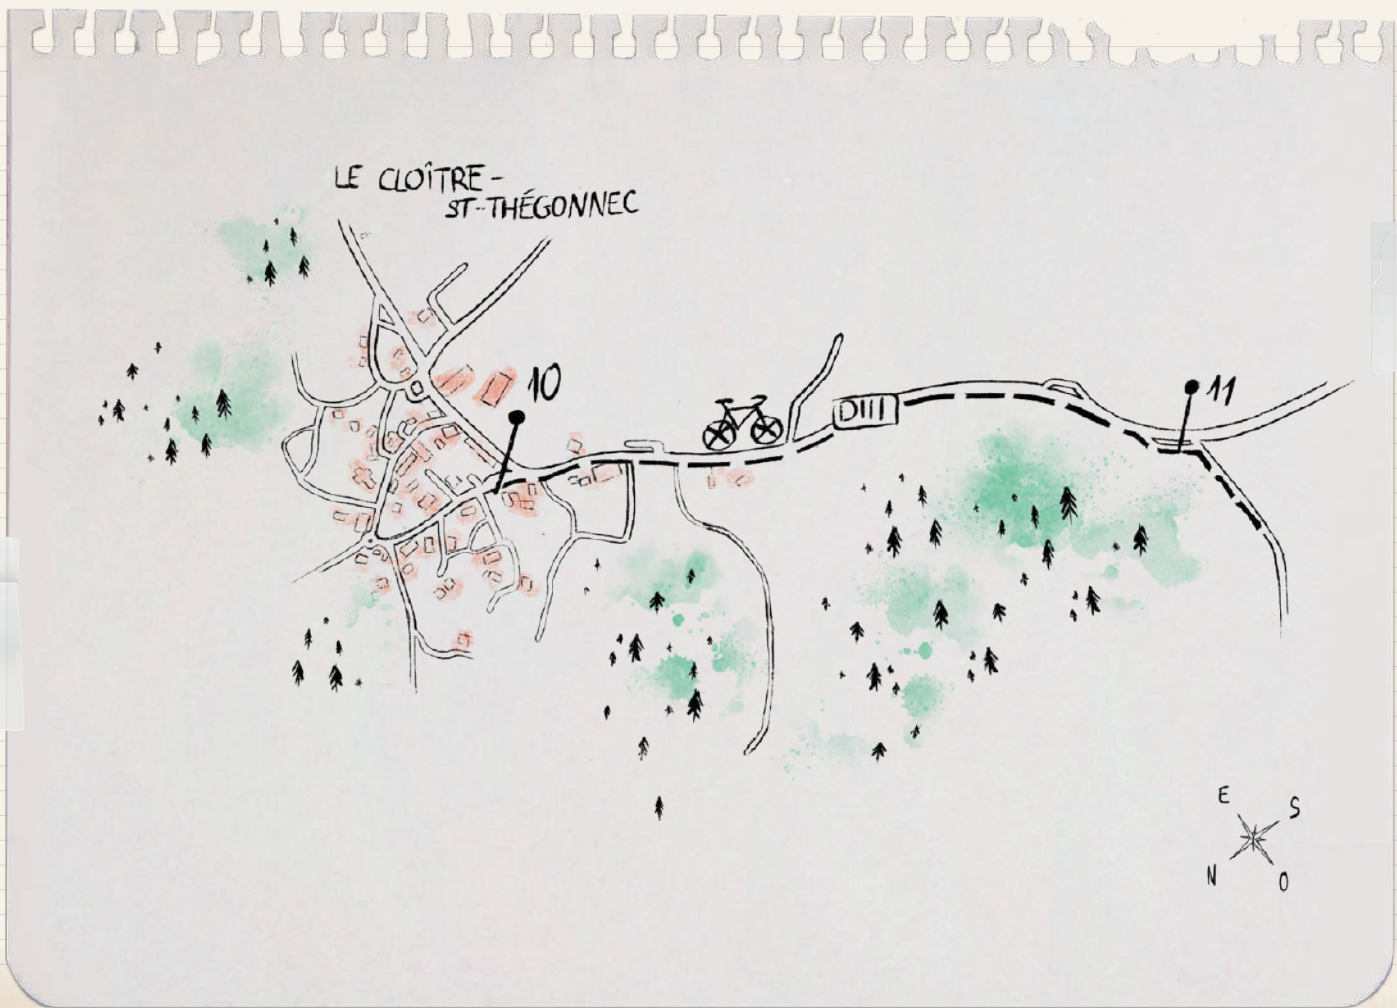 LE CLOÎTRE-
ST-THÉGONNEC
10
11
D111
E
S
N
O